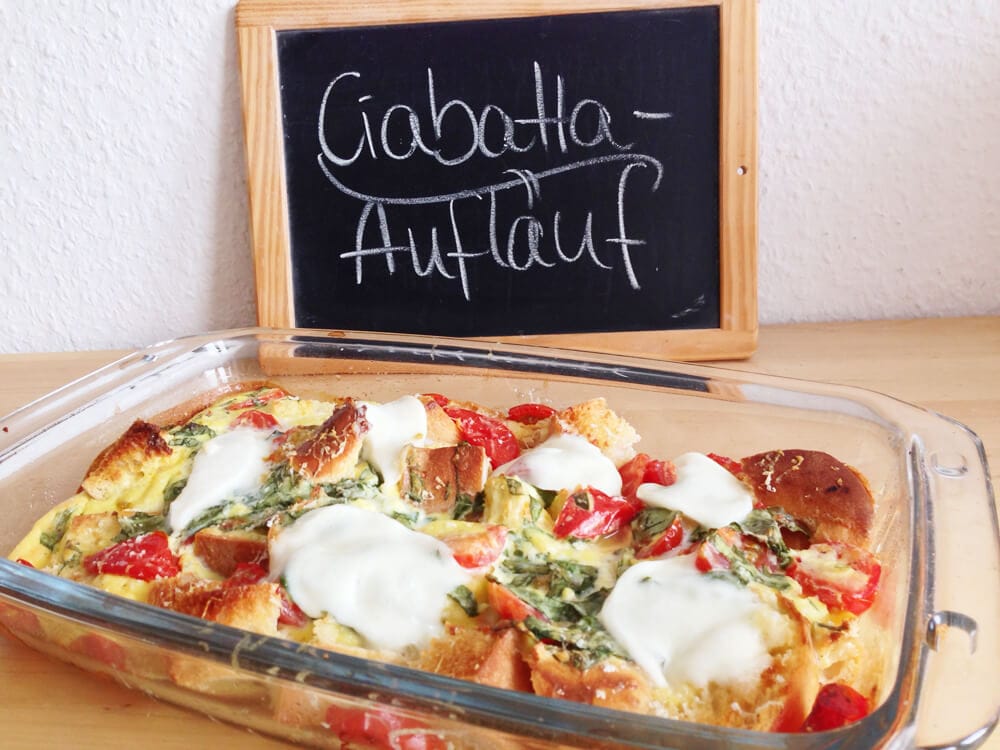 Ciabatta-
Auflauf